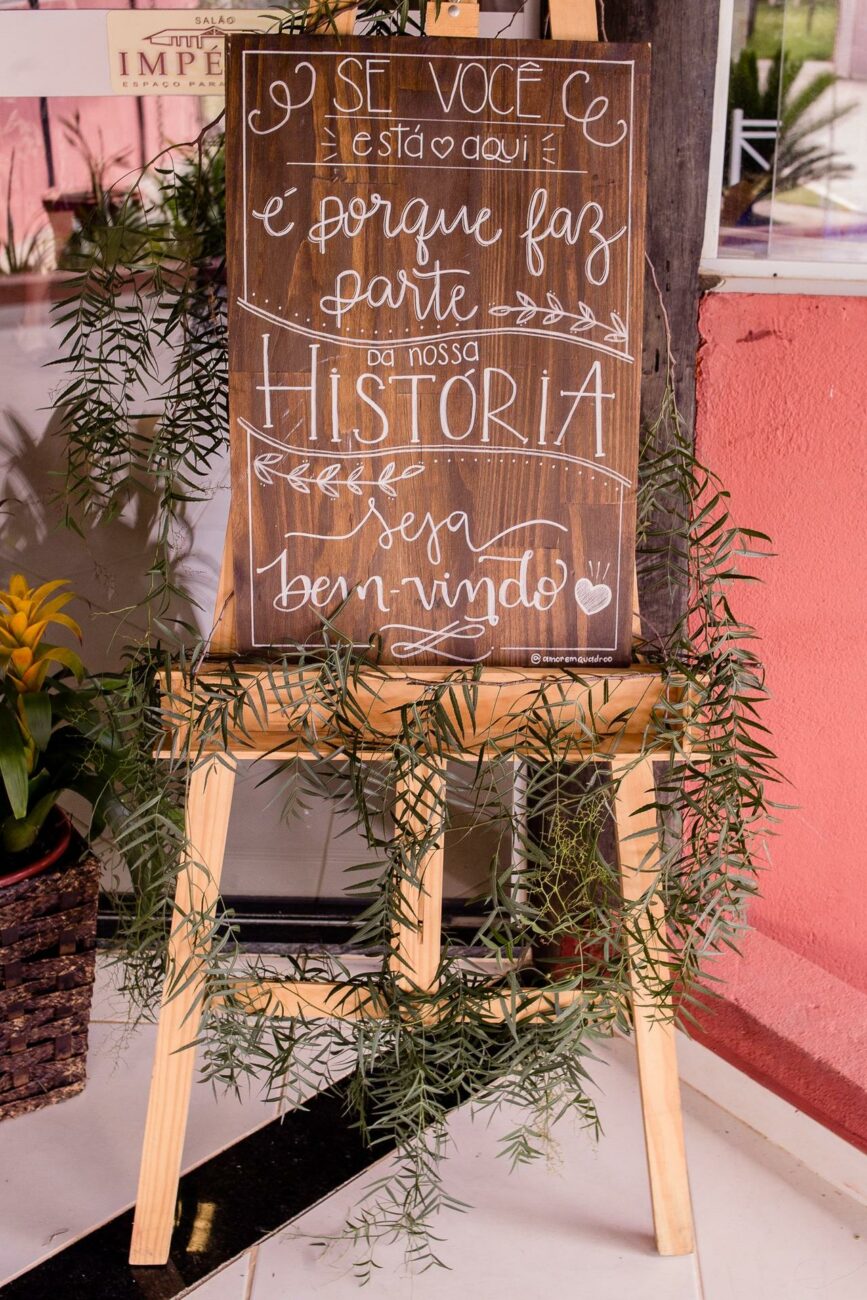 SALÃO
ESPAÇO PARA
SE VOCÊ
está aqui
é porque faz
parte
DA NOSSA
HISTÓRIA
seja
bem-vindo
@amoremquadroo